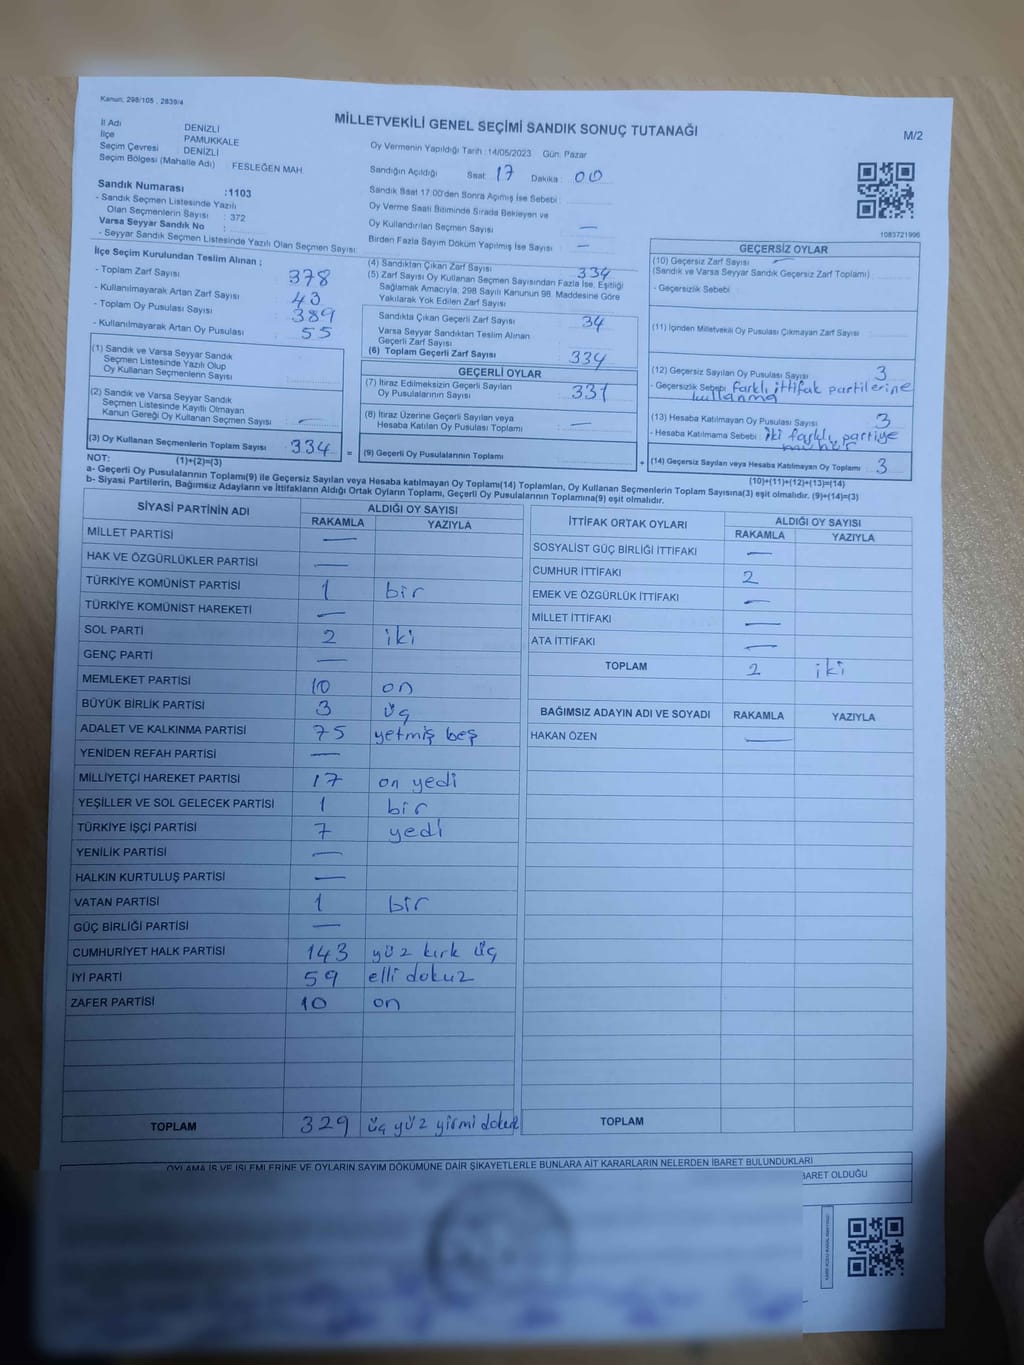 Kanun, 298/105 , 2839/4
MİLLETVEKİLİ GENEL SEÇİMİ SANDIK SONUÇ TUTANAĞI
M/2
İl Adı DENİZLİ
İlçe PAMUKKALE
Seçim Çevresi DENİZLİ
Seçim Bölgesi (Mahalle Adı) : FESLEĞEN MAH
Oy Vermenin Yapıldığı Tarih :14/05/2023 Gün: Pazar
Sandığın Açıldığı Saat: 17 Dakika : 00
Sandık Numarası :1103
- Sandık Seçmen Listesinde Yazılı
Olan Seçmenlerin Sayısı : 372
Varsa Seyyar Sandık No :
- Seyyar Sandık Seçmen Listesinde Yazılı Olan Seçmen Sayısı:
Sandık Saat 17:00'den Sonra Açımış İse Sebebi :
Oy Verme Saati Bitiminde Sırada Bekleyen ve
Oy Kullandırılan Seçmen Sayısı —
Birden Fazla Sayım Döküm Yapılmış İse Sayısı : —
1083721996
İlçe Seçim Kurulundan Teslim Alınan ;
- Toplam Zarf Sayısı 378
- Kullanılmayarak Artan Zarf Sayısı 43
- Toplam Oy Pusulası Sayısı 389
- Kullanılmayarak Artan Oy Pusulası 55
(1) Sandık ve Varsa Seyyar Sandık
Seçmen Listesinde Yazılı Olup
Oy Kullanan Seçmenlerin Sayısı
(2) Sandık ve Varsa Seyyar Sandık
Seçmen Listesinde Kayıtlı Olmayan
Kanun Gereği Oy Kullanan Seçmen Sayısı —
(3) Oy Kullanan Seçmenlerin Toplam Sayısı 334
(1)+(2)=(3)
(4) Sandıktan Çıkan Zarf Sayısı 334
(5) Zarf Sayısı Oy Kullanan Seçmen Sayısından Fazla İse, Eşitliği
Sağlamak Amacıyla; 298 Sayılı Kanunun 98. Maddesine Göre
Yakılarak Yok Edilen Zarf Sayısı
Sandıkta Çıkan Geçerli Zarf Sayısı 34
Varsa Seyyar Sandıktan Teslim Alınan
Geçerli Zarf Sayısı
(6) Toplam Geçerli Zarf Sayısı 334
GEÇERLİ OYLAR
(7) İtiraz Edilmeksizin Geçerli Sayılan
Oy Pusulalarının Sayısı 331
(8) İtiraz Üzerine Geçerli Sayılan veya
Hesaba Katılan Oy Pusulası Toplamı —
= (9) Geçerli Oy Pusulalarının Toplamı +
GEÇERSİZ OYLAR
(10) Geçersiz Zarf Sayısı —
(Sandık ve Varsa Seyyar Sandık Geçersiz Zarf Toplamı)
- Geçersizlik Sebebi
(11) İçinden Milletvekili Oy Pusulası Çıkmayan Zarf Sayısı
(12) Geçersiz Sayılan Oy Pusulası Sayısı 3
- Geçersizlik Sebebi farklı ittifak partilerine
kullanma
(13) Hesaba Katılmayan Oy Pusulası Sayısı 3
- Hesaba Katılmama Sebebi : iki farklı partiye
mühür
(14) Geçersiz Sayılan veya Hesaba Katılmayan Oy Toplamı 3
(10)+(11)+(12)+(13)=(14)
NOT:
a- Geçerli Oy Pusulalarının Toplamı(9) ile Geçersiz Sayılan veya Hesaba katılmayan Oy Toplamı(14) Toplamları, Oy Kullanan Seçmenlerin Toplam Sayısına(3) eşit olmalıdır. (9)+(14)=(3)
b- Siyasi Partilerin, Bağımsız Adayların ve İttifakların Aldığı Ortak Oyların Toplamı, Geçerli Oy Pusulalarının Toplamına(9) eşit olmalıdır.
SİYASİ PARTİNİN ADI ALDIĞI OY SAYISI
RAKAMLA YAZIYLA
MİLLET PARTİSİ —
HAK VE ÖZGÜRLÜKLER PARTİSİ —
TÜRKİYE KOMÜNİST PARTİSİ 1 bir
TÜRKİYE KOMÜNİST HAREKETİ —
SOL PARTİ 2 iki
GENÇ PARTİ —
MEMLEKET PARTİSİ 10 on
BÜYÜK BİRLİK PARTİSİ 3 üç
ADALET VE KALKINMA PARTİSİ 75 yetmiş beş
YENİDEN REFAH PARTİSİ —
MİLLİYETÇİ HAREKET PARTİSİ 17 on yedi
YEŞİLLER VE SOL GELECEK PARTİSİ 1 bir
TÜRKİYE İŞÇİ PARTİSİ 7 yedi
YENİLİK PARTİSİ —
HALKIN KURTULUŞ PARTİSİ —
VATAN PARTİSİ 1 bir
GÜÇ BİRLİĞİ PARTİSİ —
CUMHURİYET HALK PARTİSİ 143 yüz kırk üç
İYİ PARTİ 59 elli dokuz
ZAFER PARTİSİ 10 on
TOPLAM 329 üç yüz yirmi dokuz
İTTİFAK ORTAK OYLARI ALDIĞI OY SAYISI
RAKAMLA YAZIYLA
SOSYALİST GÜÇ BİRLİĞİ İTTİFAKI —
CUMHUR İTTİFAKI 2
EMEK VE ÖZGÜRLÜK İTTİFAKI —
MİLLET İTTİFAKI —
ATA İTTİFAKI —
TOPLAM 2 iki
BAĞIMSIZ ADAYIN ADI VE SOYADI RAKAMLA YAZIYLA
HAKAN ÖZEN —
TOPLAM
OYLAMA İŞ VE İŞLEMLERİNE VE OYLARIN SAYIM DÖKÜMÜNE DAİR ŞİKAYETLERLE BUNLARA AİT KARARLARIN NELERDEN İBARET BULUNDUKLARI
İBARET OLDUĞU